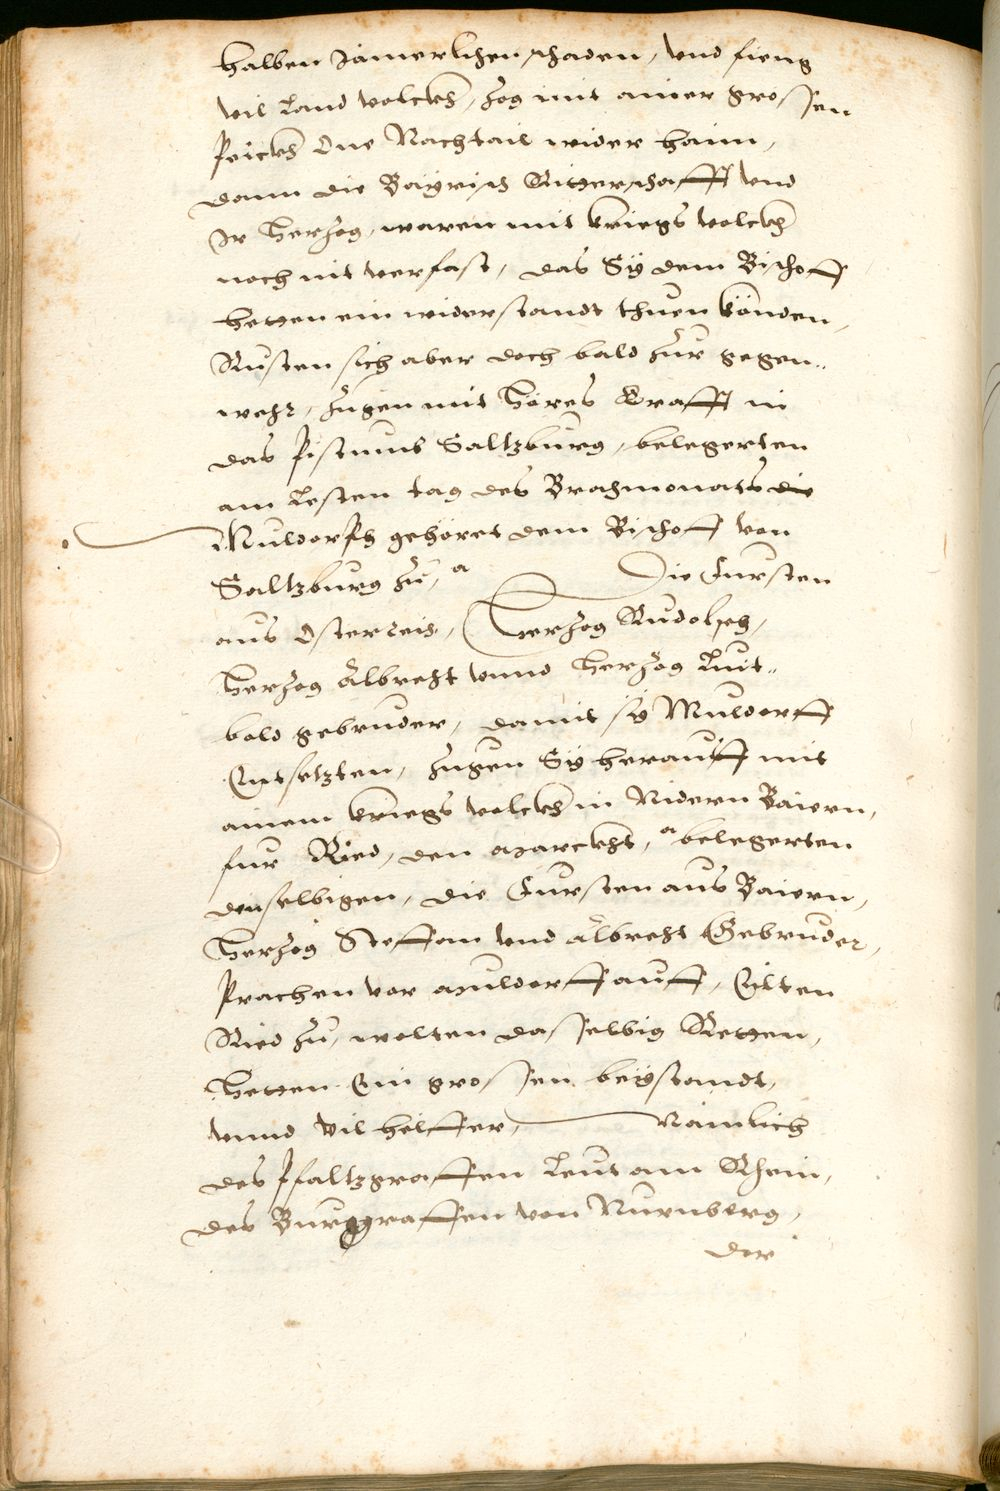 halben Jämerlichen schaden, vnd fieng
vil Land volckhs, zog mit ainer grossen
One Nachtail wider haim,
dann die Bayrisch Ritterschafft vnd
Ir Herzog, waren mit kriegs volckh
noch nit verfast, das Sy dem Bischoff
hetten ein widerstandt thuen könden,
Rusten sich aber doch bald zur gegen„
wehr, zugen mit Höres Krafft in
das Pistumb Saltzburg, belegerten
am Lesten tag des Brachmonats die
Muldorff gehöret dem Bischoff von
Saltzburg zu, Die Fursten
aus Osterreich, Herzog Rudolph,
Herzog Albrecht vnnd Herzog Luit„
bold gebruder, damit sy Muldorff
Entsetzten, zugen Sy herauff mit
ainem kriegs volckh in Nidern Baiern,
fur Ried, den marckht, belegerten
denselbigen, die Fursten aus Baiern,
Herzog Steffan vnd Albrecht Gebruder,
Prachen vor muldorff auff, Eilten
Ried zu, wolten dasselbig Retten,
Hetten Ein grossen beystandt,
vnnd vil helffer, Nämlich
des Pfaltzgraffen Leut am Rhein,
des Burggraffen von Nurnberg,
der